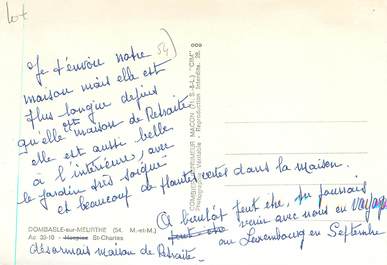 lot
54
Je t'envoie notre
maison mais elle est
plus longue depuis
qu'elle est maison de Retraite
elle est aussi belle
à l'intérieur, avec
le jardin très soigné
et beaucoup de plantes vertes dans la maison.
A bientôt peut être, tu pourrais
peut être venir avec nous en voyage
au Luxembourg en Septembre
COMBASLE-sur-MEURTHE (54. M.-et-M.)
Ac 33-10 - Hospice St-Charles
désormais maison de Retraite
COMBIER IMPRIMEUR MACON (71. S.-&-L.) "CIM"
Photographie Véritable - Reproduction Interdite.